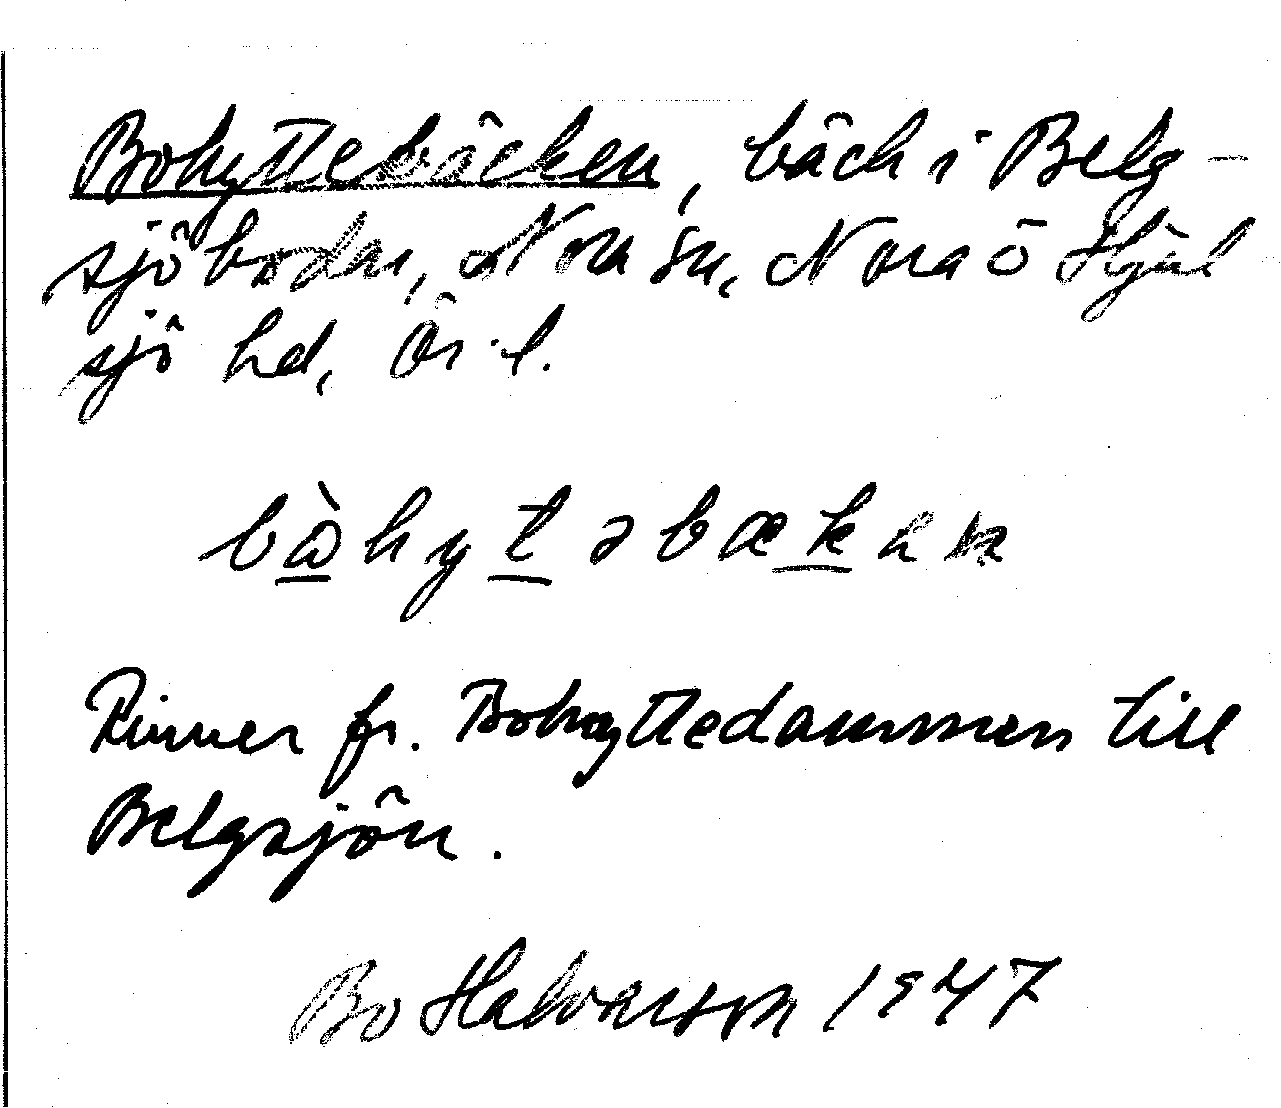 Bohyttebäcken, bäck i Belg-
sjöbodar, Nora sn, Nora o Hjul
sjö hd, Ör. l.
bὼhytəbækan
Rinner fr. Bohyttedammen till
Belgsjön.
Bo Halvarson 1947